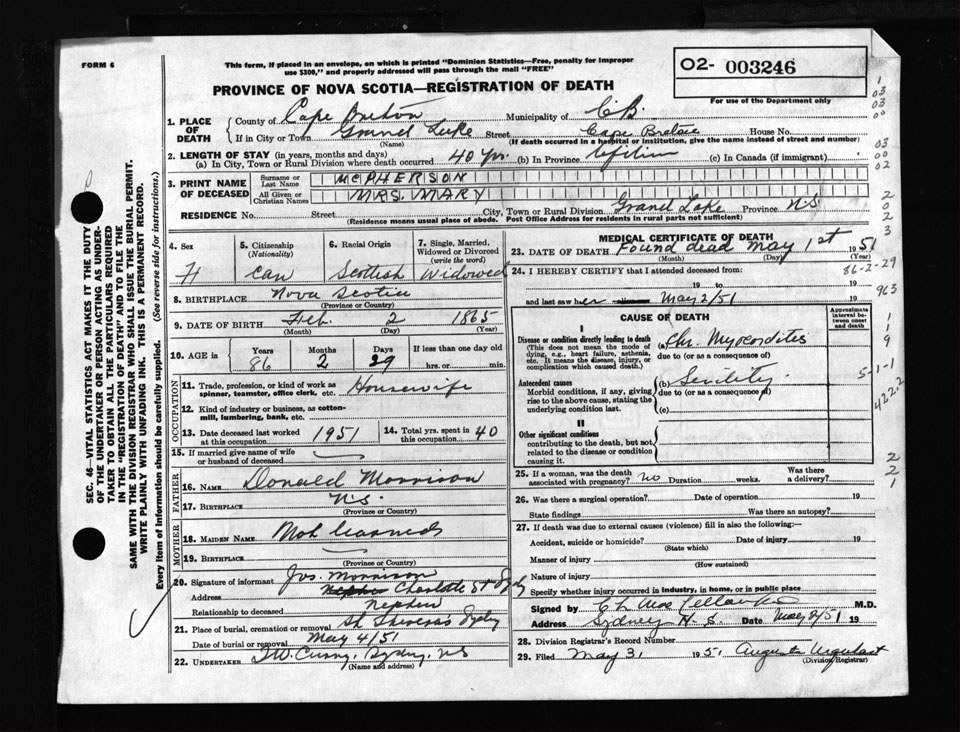 FORM 6
This form, if placed in an envelope, on which is printed "Dominion Statistics—Free, penalty for improper
use $300," and properly addressed will pass through the mail "FREE"
O2- 003246
For use of the Department only
PROVINCE OF NOVA SCOTIA—REGISTRATION OF DEATH
1. PLACE OF DEATH
County of Cape Breton Municipality of C B.
If in City or Town Grand Lake Street Cape Breton House No.
(Name) (If death occurred in a hospital or institution, give the name instead of street and number)
2. LENGTH OF STAY (in years, months and days)
(a) In City, Town or Rural Division where death occurred 40 yr. (b) In Province Lifetime (c) In Canada (if immigrant)
3. PRINT NAME OF DECEASED
Surname or Last Name MCPHERSON
All Given or Christian Names MRS. MARY
RESIDENCE No. Street City, Town or Rural Division Grand Lake Province N S
(Residence means usual place of abode. Post Office Address for residents in rural parts not sufficient)
4. Sex F
5. Citizenship (Nationality) Can
6. Racial Origin Scottish
7. Single, Married, Widowed or Divorced (write the word) Widowed
8. BIRTHPLACE Nova Scotia
(Province or Country)
9. DATE OF BIRTH Feb. 2 1865
(Month) (Day) (Year)
10. AGE in Years 86 Months 2 Days 29 If less than one day old hrs. or min.
OCCUPATION
11. Trade, profession, or kind of work as spinner, teamster, office clerk, etc. Housewife
12. Kind of industry or business, as cotton-mill, lumbering, bank, etc.
13. Date deceased last worked at this occupation 1951
14. Total yrs. spent in this occupation 40
15. If married give name of wife or husband of deceased
FATHER
16. NAME Donald Morrison
17. BIRTHPLACE N.S.
(Province or Country)
MOTHER
18. MAIDEN NAME Not learned
19. BIRTHPLACE
(Province or Country)
20. Signature of informant Jos. Morrison
Address Nephew Charlotte St Sydney
Relationship to deceased Nephew
21. Place of burial, cremation or removal St Theresas Sydney
Date of burial or removal May 4/51
22. UNDERTAKER T.W. Curry, Sydney, NS
(Name and address)
MEDICAL CERTIFICATE OF DEATH
23. DATE OF DEATH Found dead May 1st 1951
(Month) (Day) (Year)
24. I HEREBY CERTIFY that I attended deceased from:
86-2-29
19 to 19
and last saw her May 2/51 19
963
CAUSE OF DEATH
Approximate interval between onset and death
I
Disease or condition directly leading to death
(This does not mean the mode of dying, e.g., heart failure, asthenia, etc. It means the disease, injury, or complication which caused death.)
(a) Chr. Myocarditis
due to (or as a consequence of)
Antecedent causes
Morbid conditions, if any, giving rise to the above cause, stating the underlying condition last.
(b) Senility
due to (or as a consequence of)
(c)
5-1-1
422.2
II
Other significant conditions
contributing to the death, but not related to the disease or condition causing it.
25. If a woman, was the death associated with pregnancy? no Duration weeks. Was there a delivery?
26. Was there a surgical operation? Date of operation 19
State findings Was there an autopsy?
27. If death was due to external causes (violence) fill in also the following:—
Accident, suicide or homicide? Date of injury 19
(State which)
Manner of injury
(How sustained)
Nature of injury
Specify whether injury occurred in industry, in home, or in public place
Signed by M.D.
Address Sydney N. S. Date May 2/51 19
28. Division Registrar's Record Number
29. Filed May 31 1951 Augusta Urquhart
(Division Registrar)
SEC. 46—VITAL STATISTICS ACT MAKES IT THE DUTY
OF THE UNDERTAKER OR PERSON ACTING AS UNDER-
TAKER TO OBTAIN ALL THE PARTICULARS REQUIRED
IN THE "REGISTRATION OF DEATH" AND TO FILE THE
SAME WITH THE DIVISION REGISTRAR WHO SHALL ISSUE THE BURIAL PERMIT.
WRITE PLAINLY WITH UNFADING INK. THIS IS A PERMANENT RECORD.
Every item of information should be carefully supplied. (See reverse side for instructions.)
1
03
03
00
03
00
02
2
0
2
3
1
1
9
2
2
1